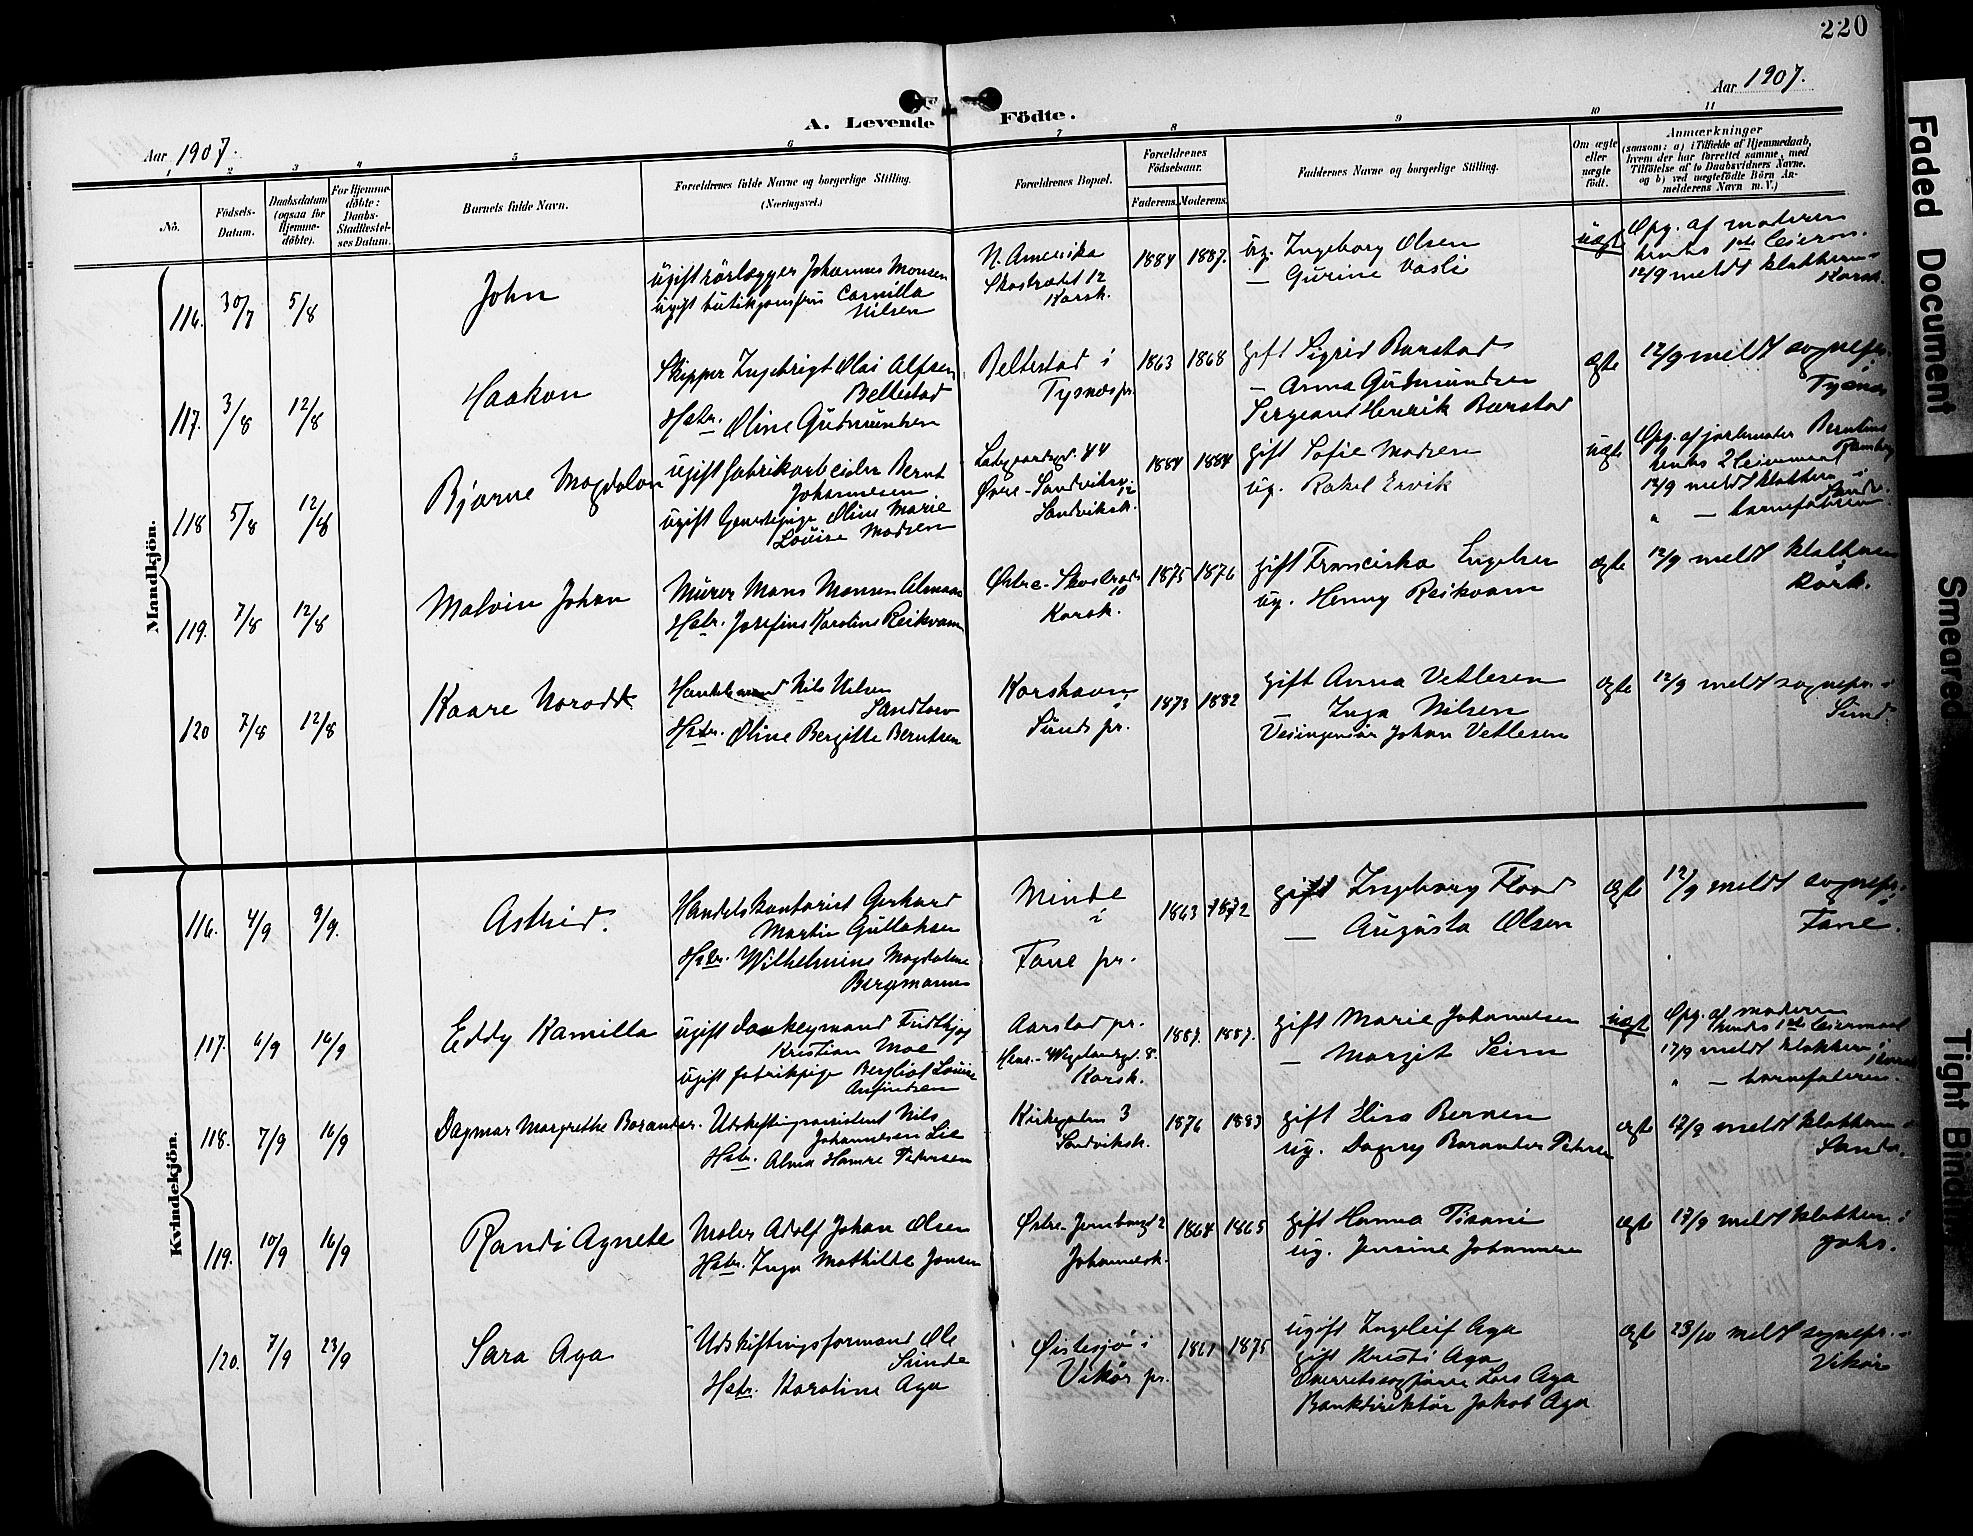 220
Aar 1907.
Aar 1907.
A. Levende Födte.
1 2 3 4 5 6 7 8 9 10 11
No.
Födsels-
Datum.
Daabsdatum
(ogsaa for
Hjemme-
döbte).
For Hjemme-
döbte:
Daabs-
Stadfæstel-
ses Datum.
Barnets fulde Navn.
Forældrenes fulde Navne og borgerlige Stilling.
(Næringsvei.)
Forældrenes Bopæl.
Forældrenes
Födselsaar.
Faderens. Moderens.
Faddernes Navne og borgerlige Stilling.
Om ægte
eller
uægte
födt.
Anmærkninger
(saasom: a) i Tilfælde af Hjemmedaab,
hvem der har forrettet samme, med
Tilföielse af to Daabsvidners Navne,
og b) ved uægtefödte Börn An-
melderens Navn m. V.)
Mandkjön.
116. 30/7 5/8
John
ugift rörlægger Johannes Monsen
ugift butikjomfru Camilla
Nilsen
N. Amerika
Skostrædet 12
Korsk.
1884 1887.
ug. Ingeborg Olsen
— Gurine Vasli
uægte
Opg. af moderen
hendes 1ste leierm.
12/9 meldt klokkeren i
Korsk.
117. 3/8 12/8
Haakon
Skipper Ingebrigt Olai Alfsen
Beltestad
Hstr. Oline Gudmundsen
Beltestad i
Tysnes pr.
1863 1868
gift Sigrid Barstad
— Anna Gudmundsen
Sergeant Henrik Barstad
ægte
12/9 meldt sognepr. i
Tysnes
118 5/8 12/8
Bjarne Magdalon
ugift fabrikarbeider Bernt
Johannesen
ugift Oline Marie
Louise Madsen
Ladegaardsgd. 44
Øvre-Sandviksv. 12
Sandviksk.
1884 1884
gift Sofie Madsen
ug. Rakel Ervik
uægte
Opg. af jordemoder Berntine
hendes 2 leiermaal
12/9 meldt klokkeren i
Sandv.
" — barnefaderen
119. 7/8 12/8
Malvin Johan
Murer Mons Monsen
Hstr. Josefine Karoline Reikvam
Østre-Skostræde 10
Korsk.
1875 1876
gift Franciska Engelsen
ug. Henny Reikvam
ægte
12/9 meldt klokkeren
Korsk.
120 7/8 12/8
Kaare Norodd
Handelsmand Nils Nilsen
Sandtorv
Hstr. Oline Bergitte Berntsen
Korshavn
i
Sunds pr.
1873 1882
gift Anna Vetlesen
— Inga Nilsen
Veiingeniør Johan Vetlesen
ægte
12/9 meldt sognepr. i
Sund.
Kvindekjön.
116. 4/9 9/9.
Astrid.
Handelskontorist Gerhard
Martin Gullaksen
Hstr. Wilhelmine Magdalene
Bergmann
Minde
i
Fane pr.
1863 1872
gift Ingeborg Flood
— Augusta Olsen
ægte
12/9 meldt sognepr. i
Fane.
117. 6/9 16/9
Eddy Kamilla
ugift donkeymand Fridthjof
Kristian Moe
ugift fabrikpige Bergliot Louise
Anfindsen
Aarstad pr.
Korsk.
1887. 1887.
gift Marie Johannesen
— Margit Seim
uægte
Opg. af moderen
hendes 1ste leiermaal
17/9 meldt klokkeren i
Korsk.
" — barnefaderen.
118. 7/9 16/9
Dagmar Margrethe Borander.
Udskiftningsassistent Nils
Johannesen Lie
Hstr. Alma Hamre Petersen
Kirkegaden 3
Sandviksk.
1876 1883
gift Elisa Bernsen
ug. Dagny Borander Petersen
ægte
17/9 meldt klokkeren i
Sandv.
119. 10/9 16/9
Randi Agnete
Maler Adolf Johan Olsen
Hstr. Inga Mathilde Jonsen
Østre-Jernbanegd 2
Johannesk.
1864 1865
gift Hanna Pisani
ug. Jensine Johannesen
ægte
17/9 meldt klokkeren i
Johs.
120. 7/9 23/9
Sara Aga
Udskiftningsformand Ole
Sunde
Hstr. Karoline Aga
Øistesjö i
Vikör pr.
1861 1875
ugift Ingleif Aga
gift Kristi Aga
Overretssagfører Lars Aga
Bankdirektör Jakob Aga
ægte
23/10 meldt sognepr. i
Vikör
Faded Document
Smeared
Tight Bindin